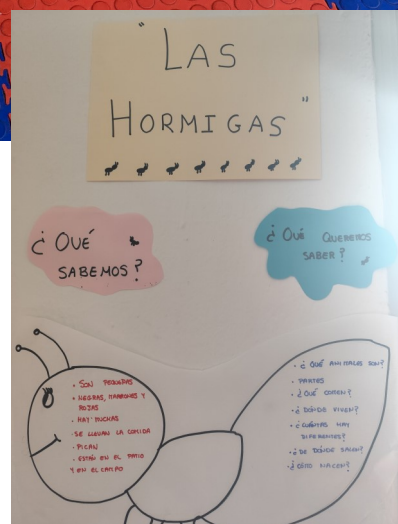 "LAS
HORMIGAS"
¿ QUÉ
SABEMOS?
¿ QUÉ QUEREMOS
SABER?
• SON PEQUEÑAS
• NEGRAS, MARRONES Y
ROJAS
• HAY MUCHAS
• SE LLEVAN LA COMIDA
• PICAN
• ESTÁN EN EL PATIO
Y EN EL CAMPO
• ¿ QUÉ ANIMALES SON?
• PARTES
• ¿ QUÉ COMEN?
• ¿ DÓNDE VIVEN?
• ¿ CUÁNTAS HAY
DIFERENTES?
• ¿ DE DÓNDE SALEN?
• ¿ CÓMO NACEN?